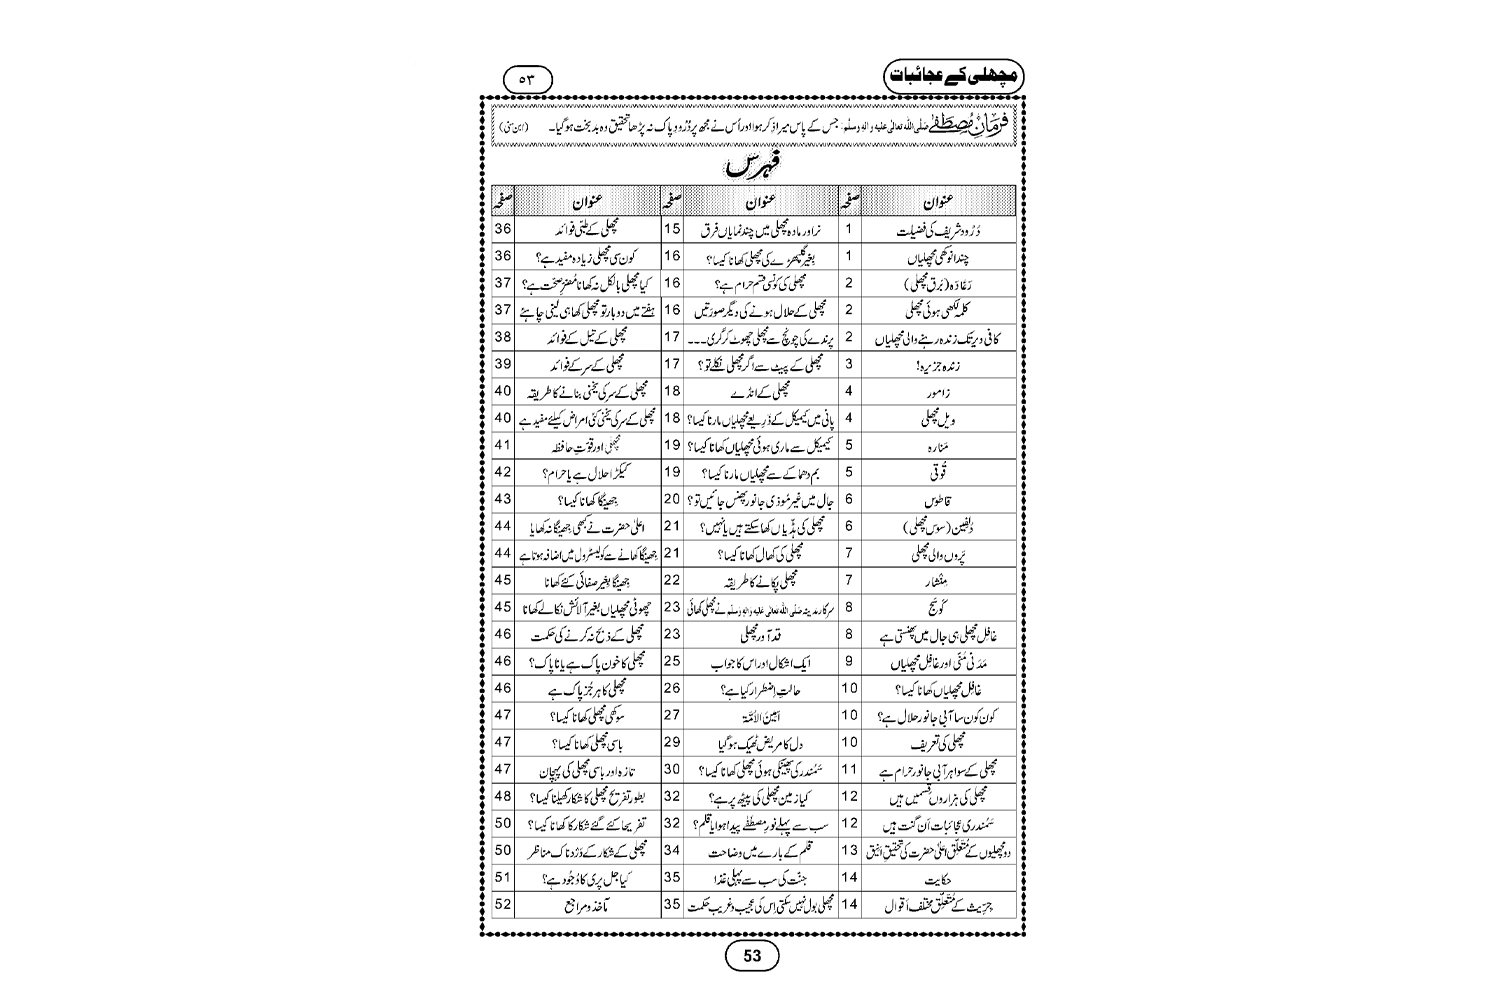 مچھلی کے عجائبات ٥٣
فرمانِ مُصطَفٰے صَلَّی اللہ تعالٰی علیہ واٰلہٖ وسلَّم: جس کے پاس میرا ذِکر ہوا اور اُس نے مجھ پر دُرُودِ پاک نہ پڑھا تحقیق وہ بد بخت ہوگیا۔ (ابن سنی)
فہرس
عنوان صفحہ عنوان صفحہ عنوان صفحہ
دُرُود شریف کی فضیلت 1 نر اور مادہ مچھلی میں چند نمایاں فرق 15 مچھلی کے طبّی فوائد 36
چند انوکھی مچھلیاں 1 بغیر گلپھڑے کی مچھلی کھانا کیسا؟ 16 کون سی مچھلی زیادہ مفید ہے؟ 36
رَعَّادَہ (بَرق مچھلی) 2 مچھلی کی کونسی قسم حرام ہے؟ 16 کیا مچھلی بالکل نہ کھانا مُضرِ صحّت ہے؟ 37
کلمہ لکھی ہوئی مچھلی 2 مچھلی کے حلال ہونے کی دیگر صورَتیں 16 ہفتے میں دو بار تو مچھلی کھا ہی لینی چاہئے 37
کافی دیر تک زندہ رہنے والی مچھلیاں 2 پرندے کی چونچ سے مچھلی چھوٹ کر گری۔۔۔ 17 مچھلی کے تیل کے فوائد 38
زندہ جزیرہ! 3 مچھلی کے پیٹ سے اگر مچھلی نکلے تو؟ 17 مچھلی کے سر کے فوائد 39
زامور 4 مچھلی کے انڈے 18 مچھلی کے سر کی یخنی بنانے کا طریقہ 40
ویل مچھلی 4 پانی میں کیمیکل کے ذَرِیعے مچھلیاں مارنا کیسا؟ 18 مچھلی کے سر کی یخنی کئی امراض کیلئے مفید ہے 40
مَنارہ 5 کیمیکل سے ماری ہوئی مچھلیاں کھانا کیسا؟ 19 مچھلی اور قوّتِ حافظہ 41
قُوقی 5 بم دھماکے سے مچھلیاں مارنا کیسا؟ 19 کیکڑا حلال ہے یا حرام؟ 42
قاطوس 6 جال میں غیر مُوذی جانور پھنس جائیں تو؟ 20 جھینگا کھانا کیسا؟ 43
دُلفین (سوس مچھلی) 6 مچھلی کی ہڈّیاں کھا سکتے ہیں یا نہیں؟ 21 اعلیٰ حضرت نے کبھی جھینگا نہ کھایا 44
پَروں والی مچھلی 7 مچھلی کی کھال کھانا کیسا؟ 21 جھینگا کھانے سے کولیسٹرول میں اضافہ ہوتا ہے 44
مِنْشار 7 مچھلی پکانے کا طریقہ 22 جھینگا بغیر صفائی کئے کھانا 45
کَوسَج 8 سرکارِ مدینہ صلَّی اللہ تعالٰی علیہ واٰلہٖ وسلَّم نے مچھلی کھائی 23 چھوٹی مچھلیاں بغیر آلائش نکالے کھانا 45
غافِل مچھلی ہی جال میں پھنستی ہے 8 قد آور مچھلی 23 مچھلی کے ذبح نہ کرنے کی حکمت 46
مَدَنی مُنّی اور غافِل مچھلیاں 9 ایک اشکال اور اس کا جواب 25 مچھلی کا خون پاک ہے یا ناپاک؟ 46
غافِل مچھلیاں کھانا کیسا؟ 10 حالتِ اِضطِرار کیا ہے؟ 26 مچھلی کا ہر جُز پاک ہے 46
کون کون سا آبی جانور حلال ہے؟ 10 اَمِینُ الْاُمَّۃ 27 سوکھی مچھلی کھانا کیسا؟ 47
مچھلی کی تعریف 10 دل کا مریض ٹھیک ہوگیا 29 باسی مچھلی کھانا کیسا؟ 47
مچھلی کے سوا ہر آبی جانور حرام ہے 11 سَمُندر کی پھینکی ہوئی مچھلی کھانا کیسا؟ 30 تازہ اور باسی مچھلی کی پہچان 47
مچھلی کی ہزاروں قسمیں ہیں 12 کیا زمین مچھلی کی پیٹھ پر ہے؟ 32 بطورِ تفریح مچھلی کا شکار کھیلنا کیسا؟ 48
سَمُندری عجائبات اَن گنت ہیں 12 سب سے پہلے نورِ مصطَفٰے پیدا ہوا یا قلم؟ 32 تفریحاً کئے گئے شکار کا کھانا کیسا؟ 50
دو مچھلیوں کے مُتَعلِّق اعلیٰ حضرت کی تحقیقِ انیق 13 قلم کے بارے میں وضاحت 34 مچھلی کے شکار کے دَرْدناک مناظر 50
حکایت 14 جنّت کی سب سے پہلی غذا 35 کیا جل پری کا وُجُود ہے؟ 51
جِرِّیث کے مُتَعلِّق مختلف اَقوال 14 مچھلی بول نہیں سکتی اِس کی عجیب و غریب حکمت 35 مآخذ و مراجع 52
53